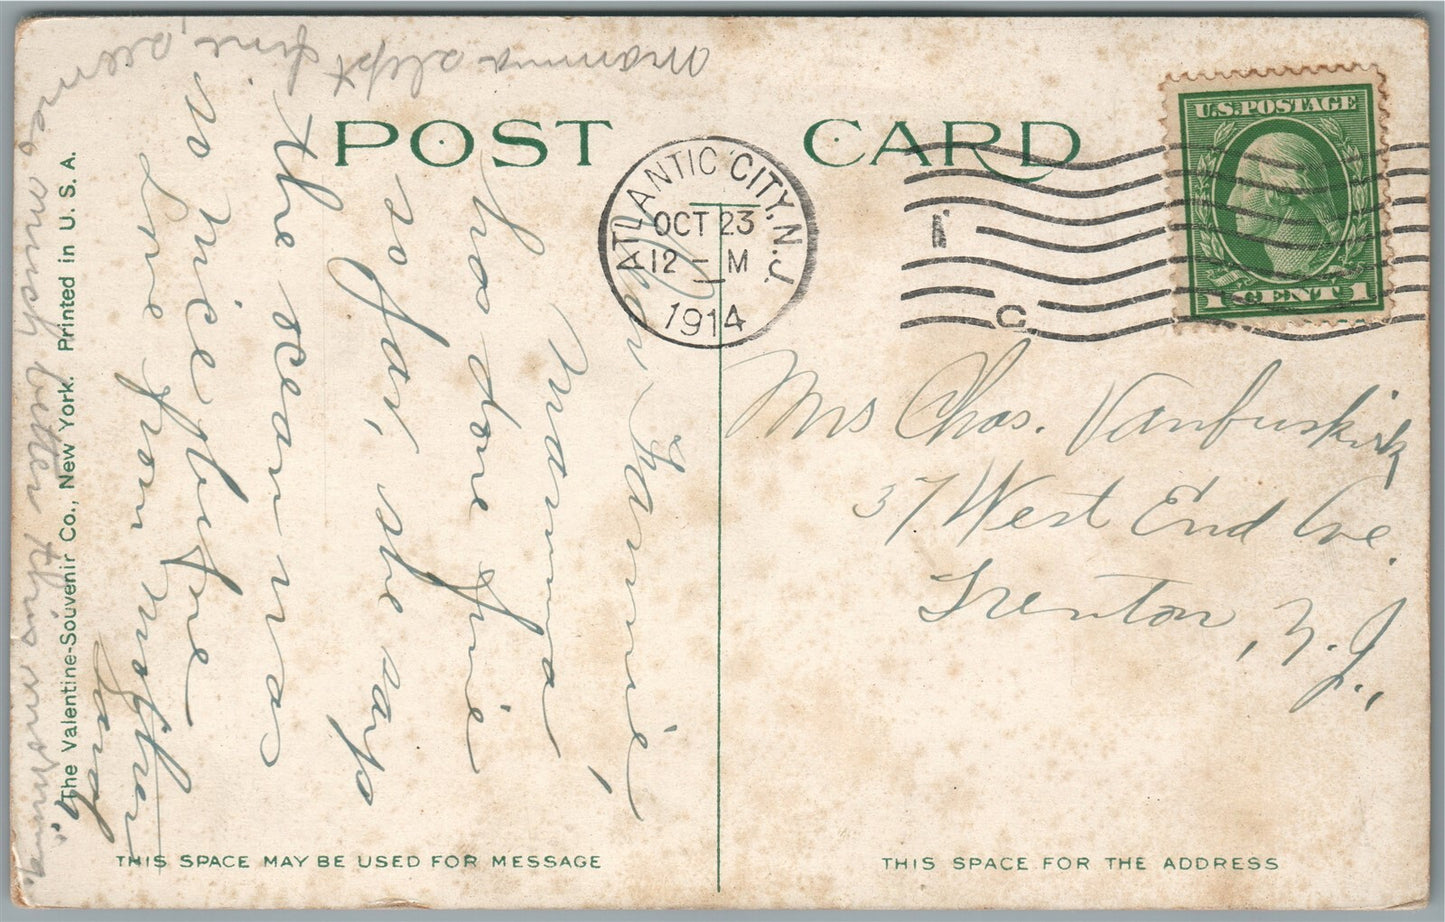 POST CARD
ATLANTIC CITY, N.J.
OCT 23
12 - M
1914
U.S. POSTAGE
1 CENT 1
Mrs Chas. Vanbuskirk
37 West End Ave.
Trenton, N.J.,
Fannie
Mamma
has done fine
so far, she says
the ocean was
so nice & fine
Love from mother
Sarah.
Mamma slept fine, seems
much better this morning.
The Valentine-Souvenir Co., New York. Printed in U. S. A.
THIS SPACE MAY BE USED FOR MESSAGE
THIS SPACE FOR THE ADDRESS